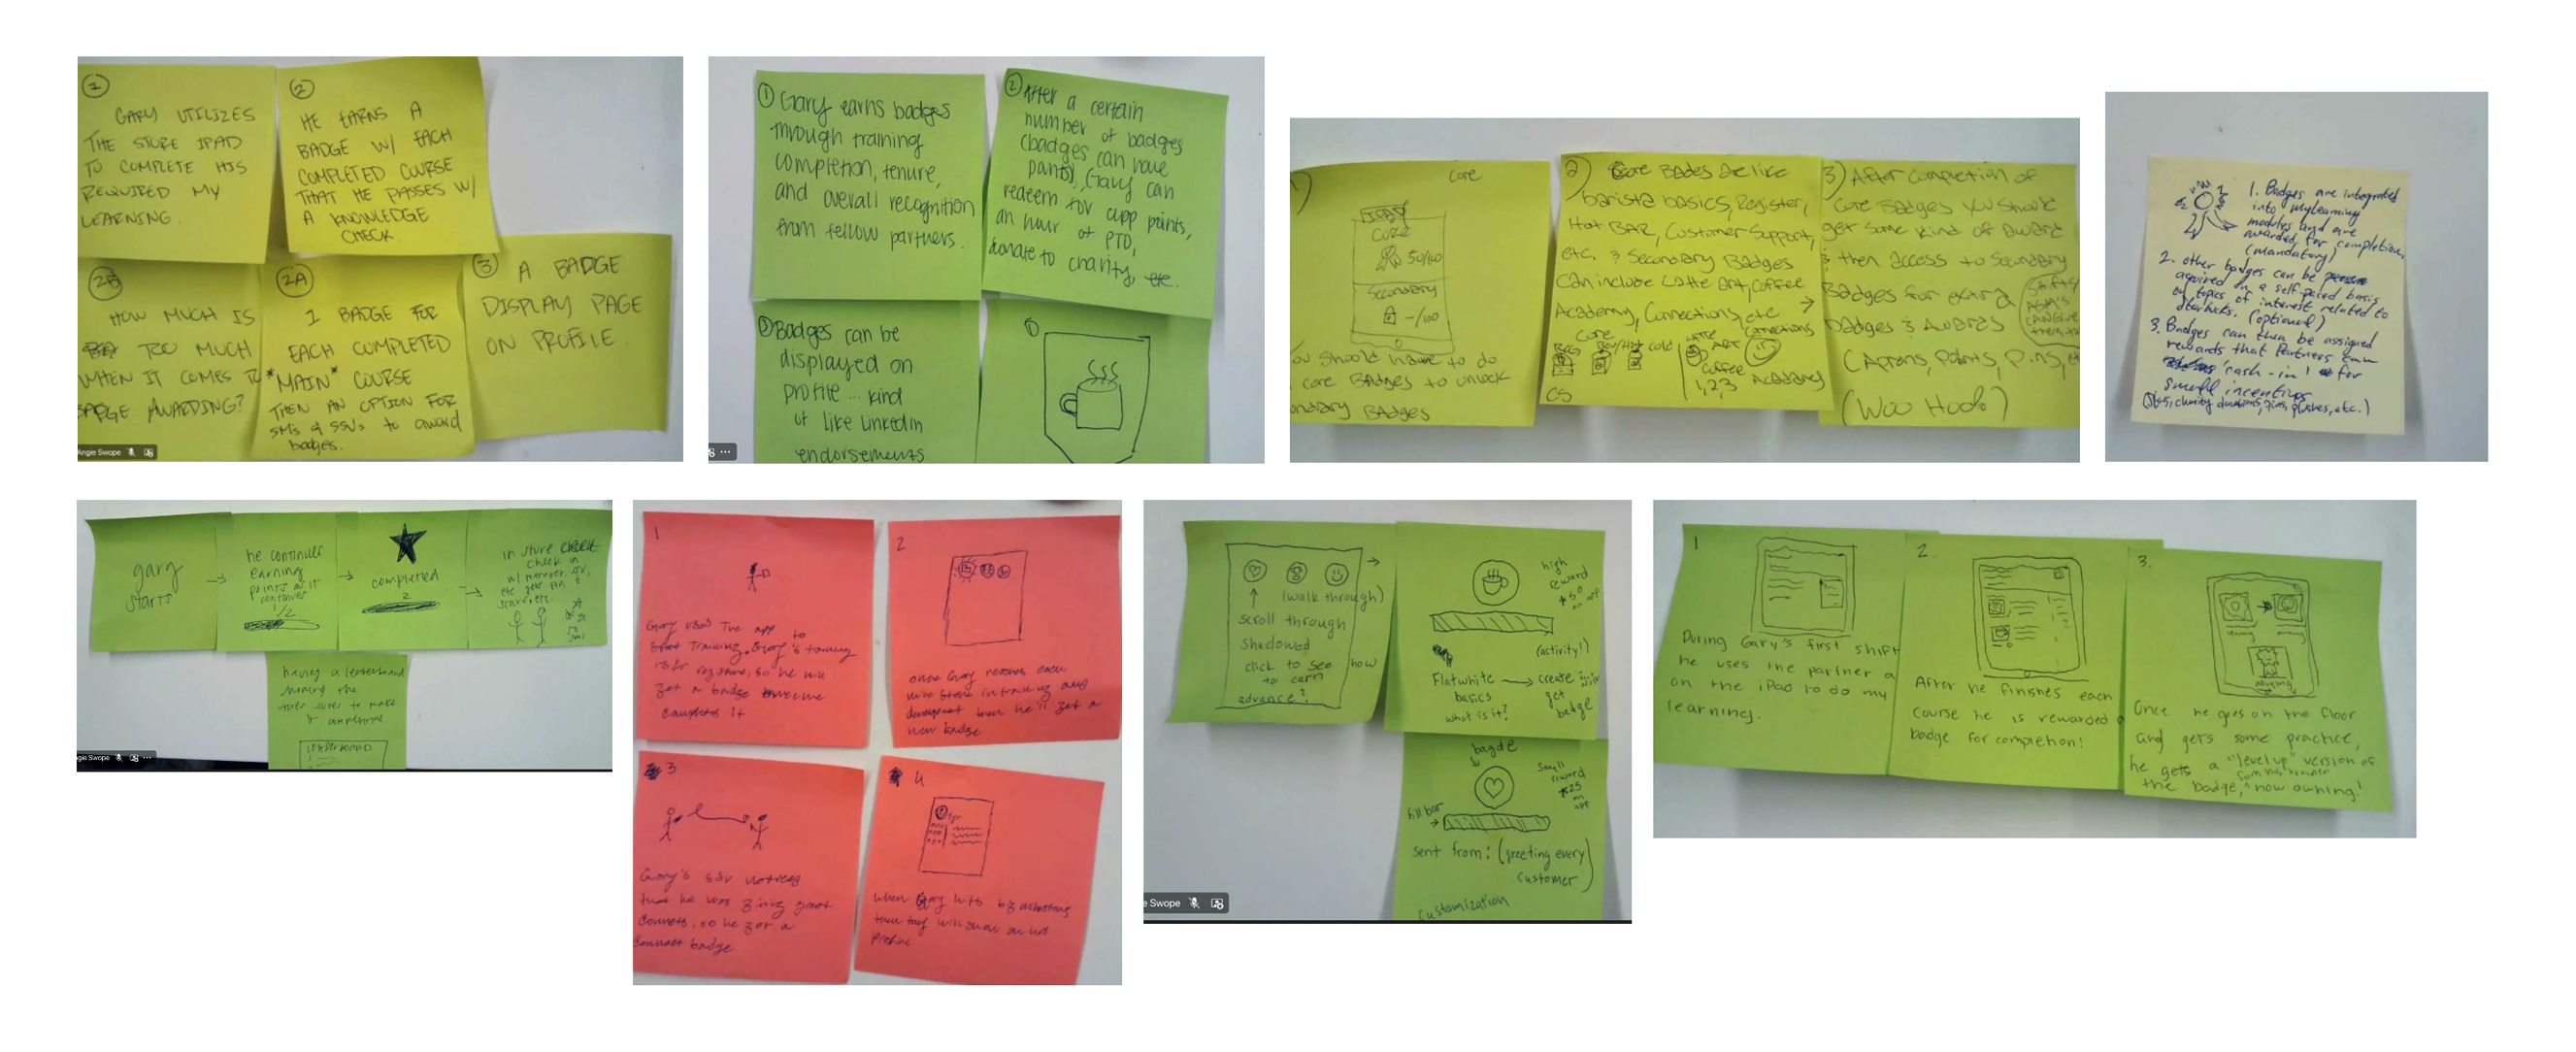 1
GARY UTILIZES
THE STORE IPAD
TO COMPLETE HIS
REQUIRED MY
LEARNING.
2
HE EARNS A
BADGE W/ EACH
COMPLETED COURSE
THAT HE PASSES W/
A KNOWLEDGE
CHECK.
2B
HOW MUCH IS
TOO MUCH
WHEN IT COMES TO
BADGE AWARDING?
2A
1 BADGE FOR
EACH COMPLETED
*MAIN* COURSE
THEN AN OPTION FOR
SMs & SSVs to award
badges.
3
A BADGE
DISPLAY PAGE
ON PROFILE.
Angie Swope
1 Gary earns badges
through training
completion, tenure,
and overall recognition
from fellow partners.
2 After a certain
number of badges
(badges can have
points), Gary can
redeem for app points,
an hour of PTO,
donate to charity, etc.
3 Badges can be
displayed on
profile... kind
of like LinkedIn
endorsements
1)
Core
CORE
50/100
Secondary
-/100
You should have to do
core BAdges to unlock
Secondary BAdges
2) Core Bades are like
barista basics, Register,
Hot BAR, Customer Support,
etc. & Secondary Badges
Can include Latte Art, Coffee
Academy, Connections, etc
Core
Cold
Latte Art
Connections
Coffee
1,2,3 Academy
CS
3) After completion of
Core Badges You should
get some kind of award
& then access to Secondary
Badges for extra
badges & Awards
(Aprons, Points, Pins, etc
(Woo Hoo!)
1. Badges are integrated
into mylearning
modules and are
awarded for completion
(mandatory)
2. other badges can be
acquired on a self-paced basis
on topics of interest related to
starbucks. (optional)
3. Badges can then be assigned
rewards that Partners can
'cash-in' for
small incentives
charity donations, pins, plushes, etc.)
gary
starts
he continues
earning
points as it
continues
1/2
completed
2
in store
check in
w/ manager,
etc gets pin,
having a leaderboard
LEADERBOARD
gie Swope
1
Gary uses the app to
Start Training. Gary's training
is for register, so he will
get a badge
completes it
2
once Gary reaches each
mile stone in training and
development then he'll get a
new badge
3
Gary's SSV notices
that he was giving great
connects, so he got a
connect badge
4
when Gary hits big milestones
then they will show on his
profile
(walk through)
scroll through
shadowed
click to see how
to earn
advance?
high
reward
*50
on app
(activity!)
Flatwhite → create
basics get
what is it? badge
bagde
small
reward
*25
on
app
fill bar
sent from: (greeting every
customer)
customization
e Swope
1
During Gary's first shift
he uses the partner a
on the iPad to do my
learning.
2.
After he finishes each
course he is rewarded a
badge for completion!
3.
Once he goes on the floor
and gets some practice,
he gets a "level up" version of
from his trainer
the badge, "now owning!"